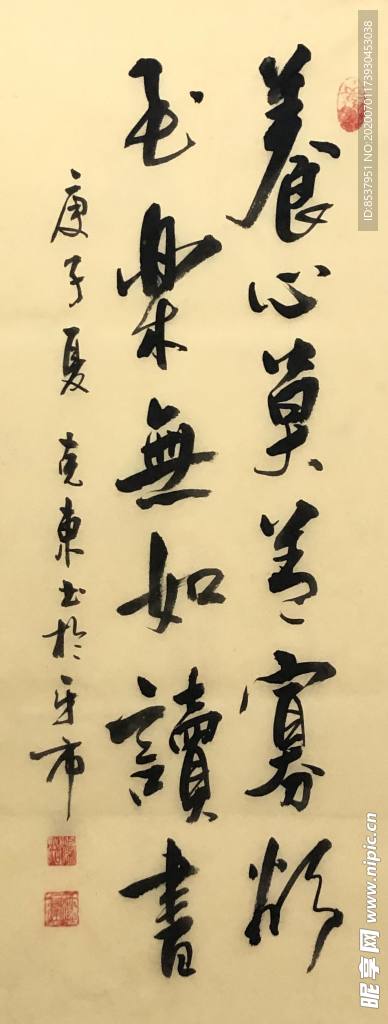 養心莫善寡欲
至樂無如讀書
庚子夏克東书於平市
ID:8537951 NO:20200701173930453038
昵享网 www.nipic.cn